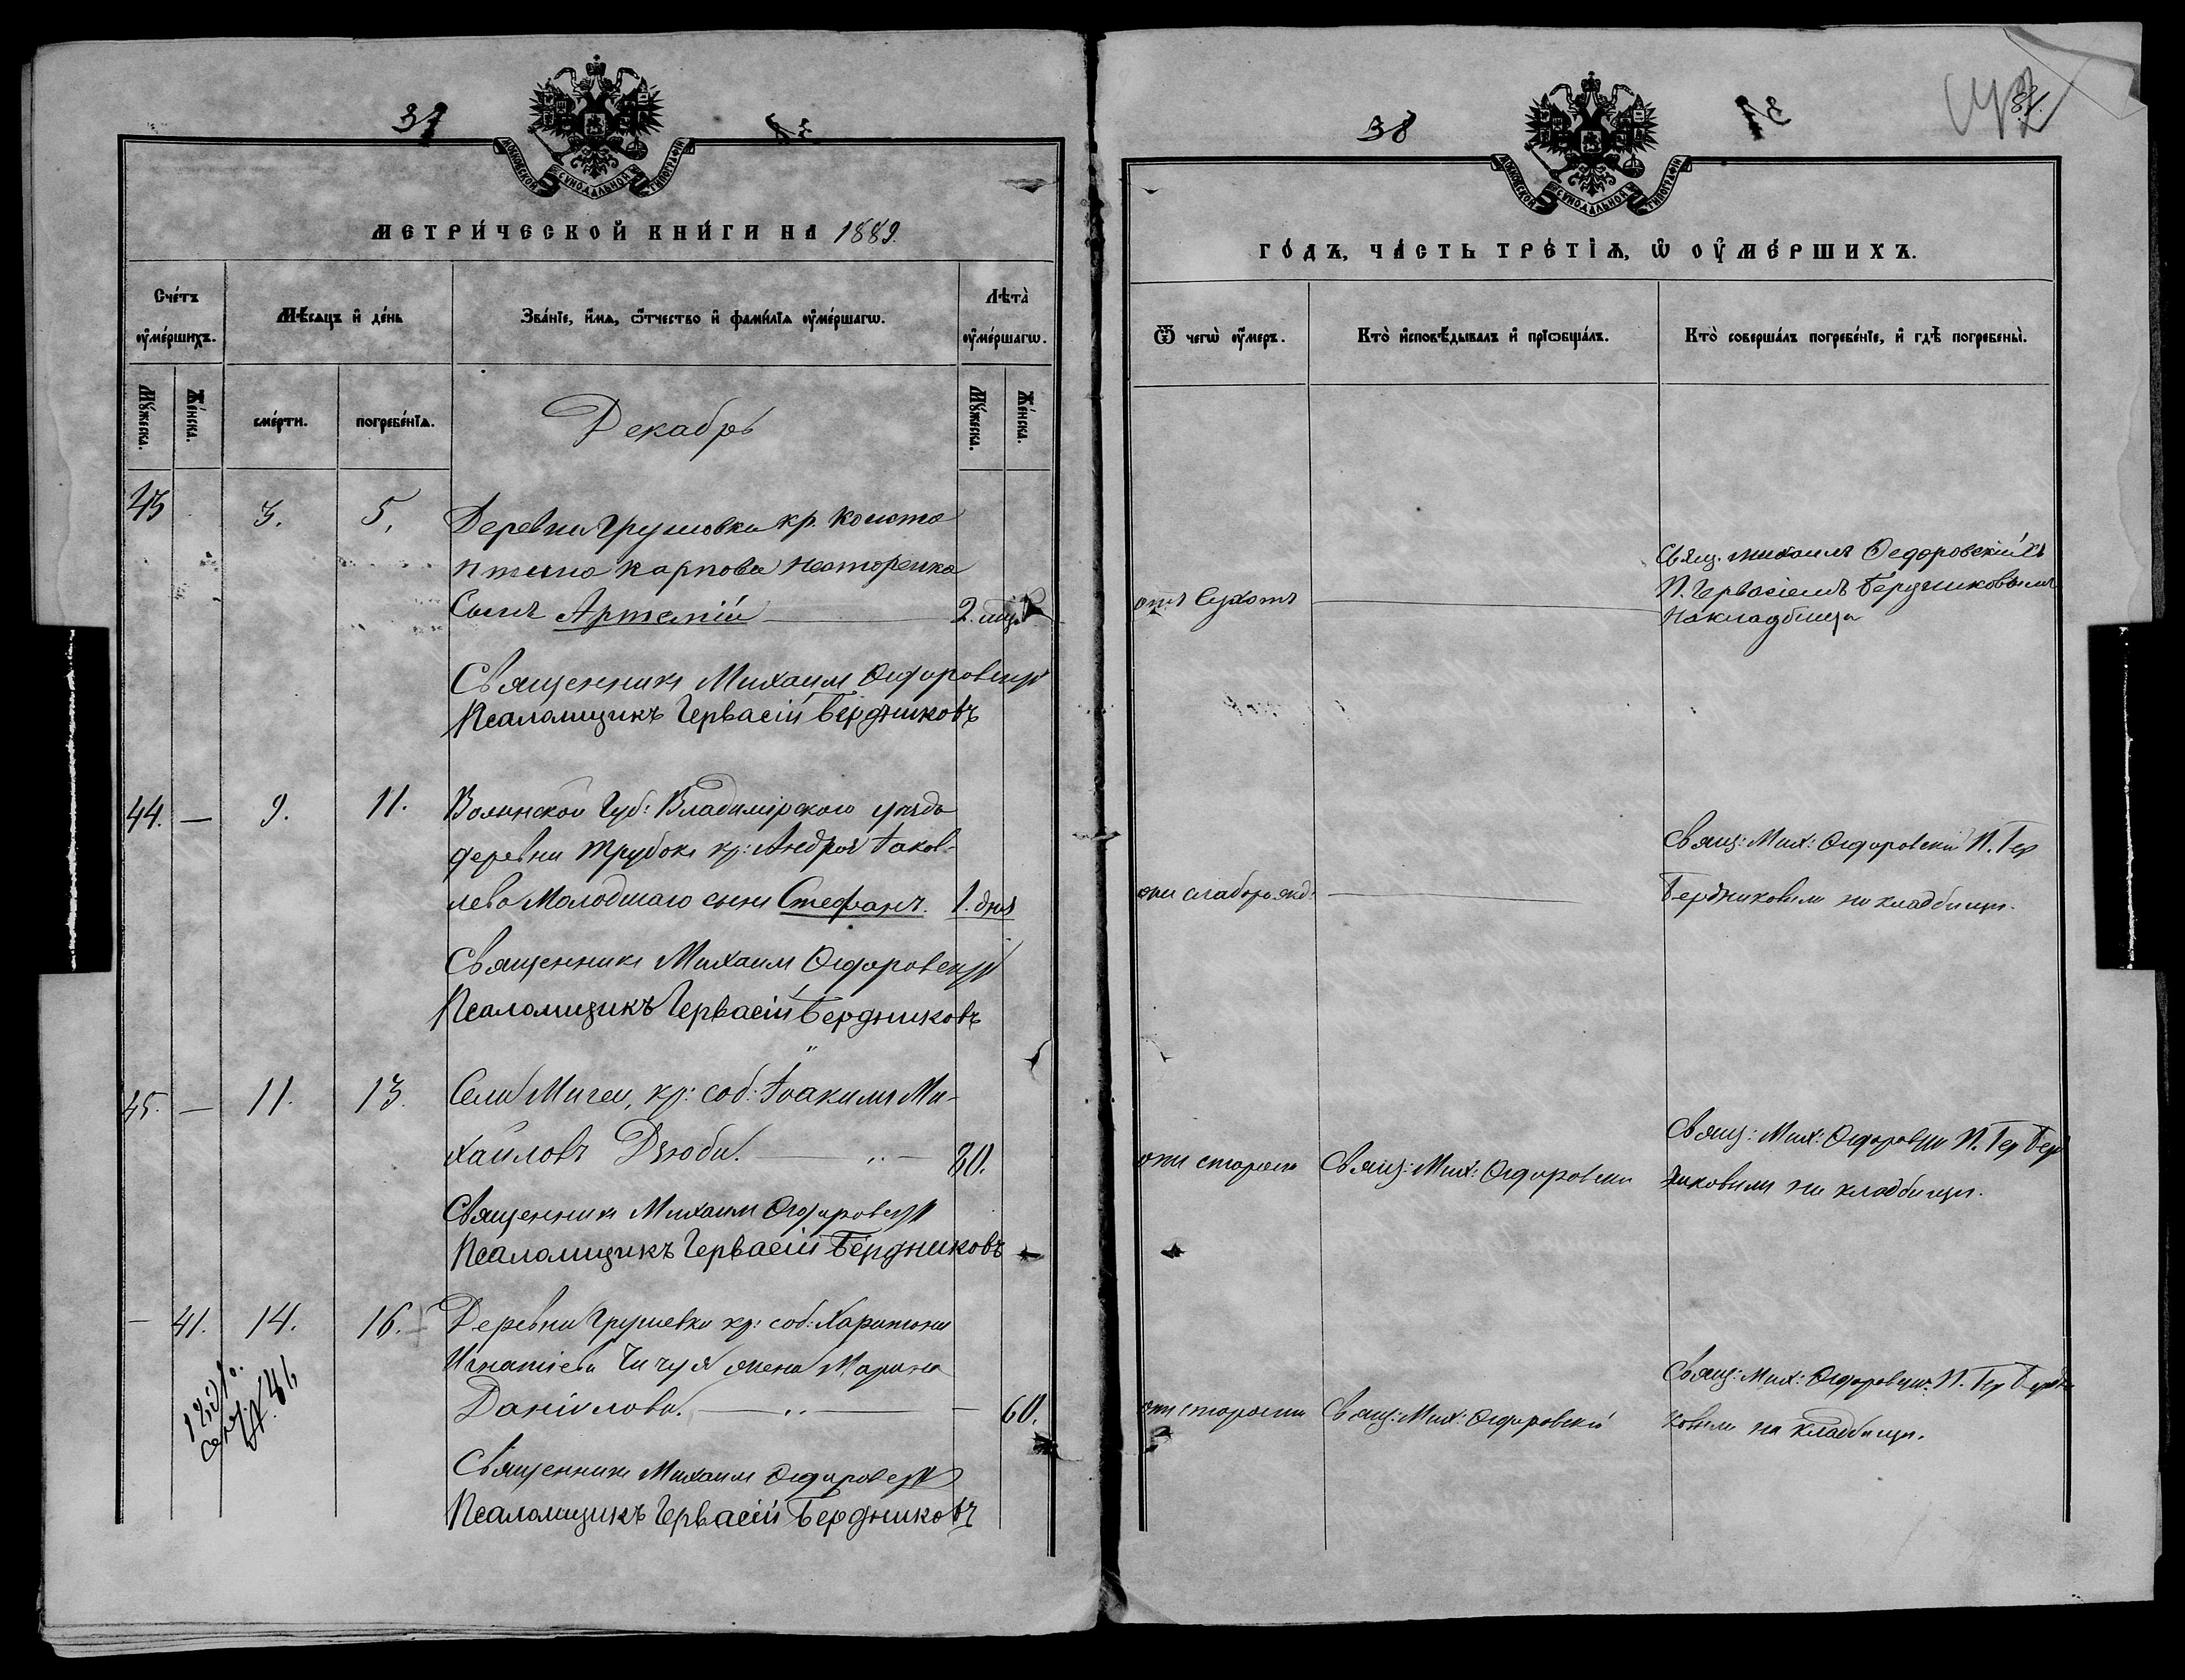 37
МОСКОВСКОЙ СѴНОДАЛЬНОЙ ТИПОГРАФІИ
МЕТРИ́ЧЕСКОЙ КНИ́ГИ НА 1889.
Сче́тъ ᲂу҆ме́ршихъ.
Мѣ́сяцъ и҆ де́нь
Зва́нїе, и҆́мѧ, ѻ҆́тчество и҆ фами́лїѧ ᲂу҆ме́ршагѡ.
Лѣта̀ ᲂу҆ме́ршагѡ.
Мꙋ́жеска.
Же́нска.
сме́рти.
погребе́нїѧ.
Мꙋ́жеска.
Же́нска.
Декабрь
43
3.
5.
Деревни Грушовки кр. Конста
нтина Карпова Нестеренка
Сынъ Артемій
2. мѣс.
Священникъ Михаилъ Ѳедоровскій
Псаломщикъ Гервасій Бердниковъ
44. —
9.
11.
Волынской Губ: Владимірского уѣзда
деревни Трубокъ кр: Андрея Іаков-
лева Молодшаго сынъ Стефанъ.
1. дня
Священникъ Михаилъ Ѳедоровскій
Псаломщикъ Гервасій Бердниковъ
45. —
11.
13.
Села Мигеи, кр: соб: Іоакимъ Ми-
хайловъ Дзюба.
80.
Священникъ Михаилъ Ѳедоровскій
Псаломщикъ Гервасій Бердниковъ
— 41.
14.
16.
Деревни Грушевки кр: соб: Харитона
Игнатіева Чичуя жена Марина
Даніилова.
60.
Священникъ Михаилъ Ѳедоровскій
Псаломщикъ Гервасій Бердниковъ
38
81.
МОСКОВСКОЙ СѴНОДАЛЬНОЙ ТИПОГРАФІИ
ГО́ДЪ, ЧА́СТЬ ТРЕ́ТЇѦ, Ѡ҆ ОУ҆МЕ́РШИХЪ.
Ѿ чегѡ̀ ᲂу҆́меръ.
Кто̀ и҆сповѣ́дывалъ и҆ прїѡбща́лъ.
Кто̀ соверша́лъ погребе́нїе, и҆ гдѣ̀ погребены̀.
отъ Сухотъ
Свящ. Михаилъ Ѳедоровскій съ
П. Гервасіемъ Бердниковымъ
на кладбищѣ
отъ слаборожд:
Свящ: Мих: Ѳедоровскій П. Гер
Бердниковымъ на кладбищѣ.
отъ старости
Свящ: Мих: Ѳедоровскій
Свящ: Мих: Ѳедоровскій П. Гер Берд
никовымъ на кладбищѣ.
отъ старости
Свящ: Мих: Ѳедоровскій
Свящ: Мих: Ѳедоровскій П. Гер Бердни
ковымъ на кладбищѣ.